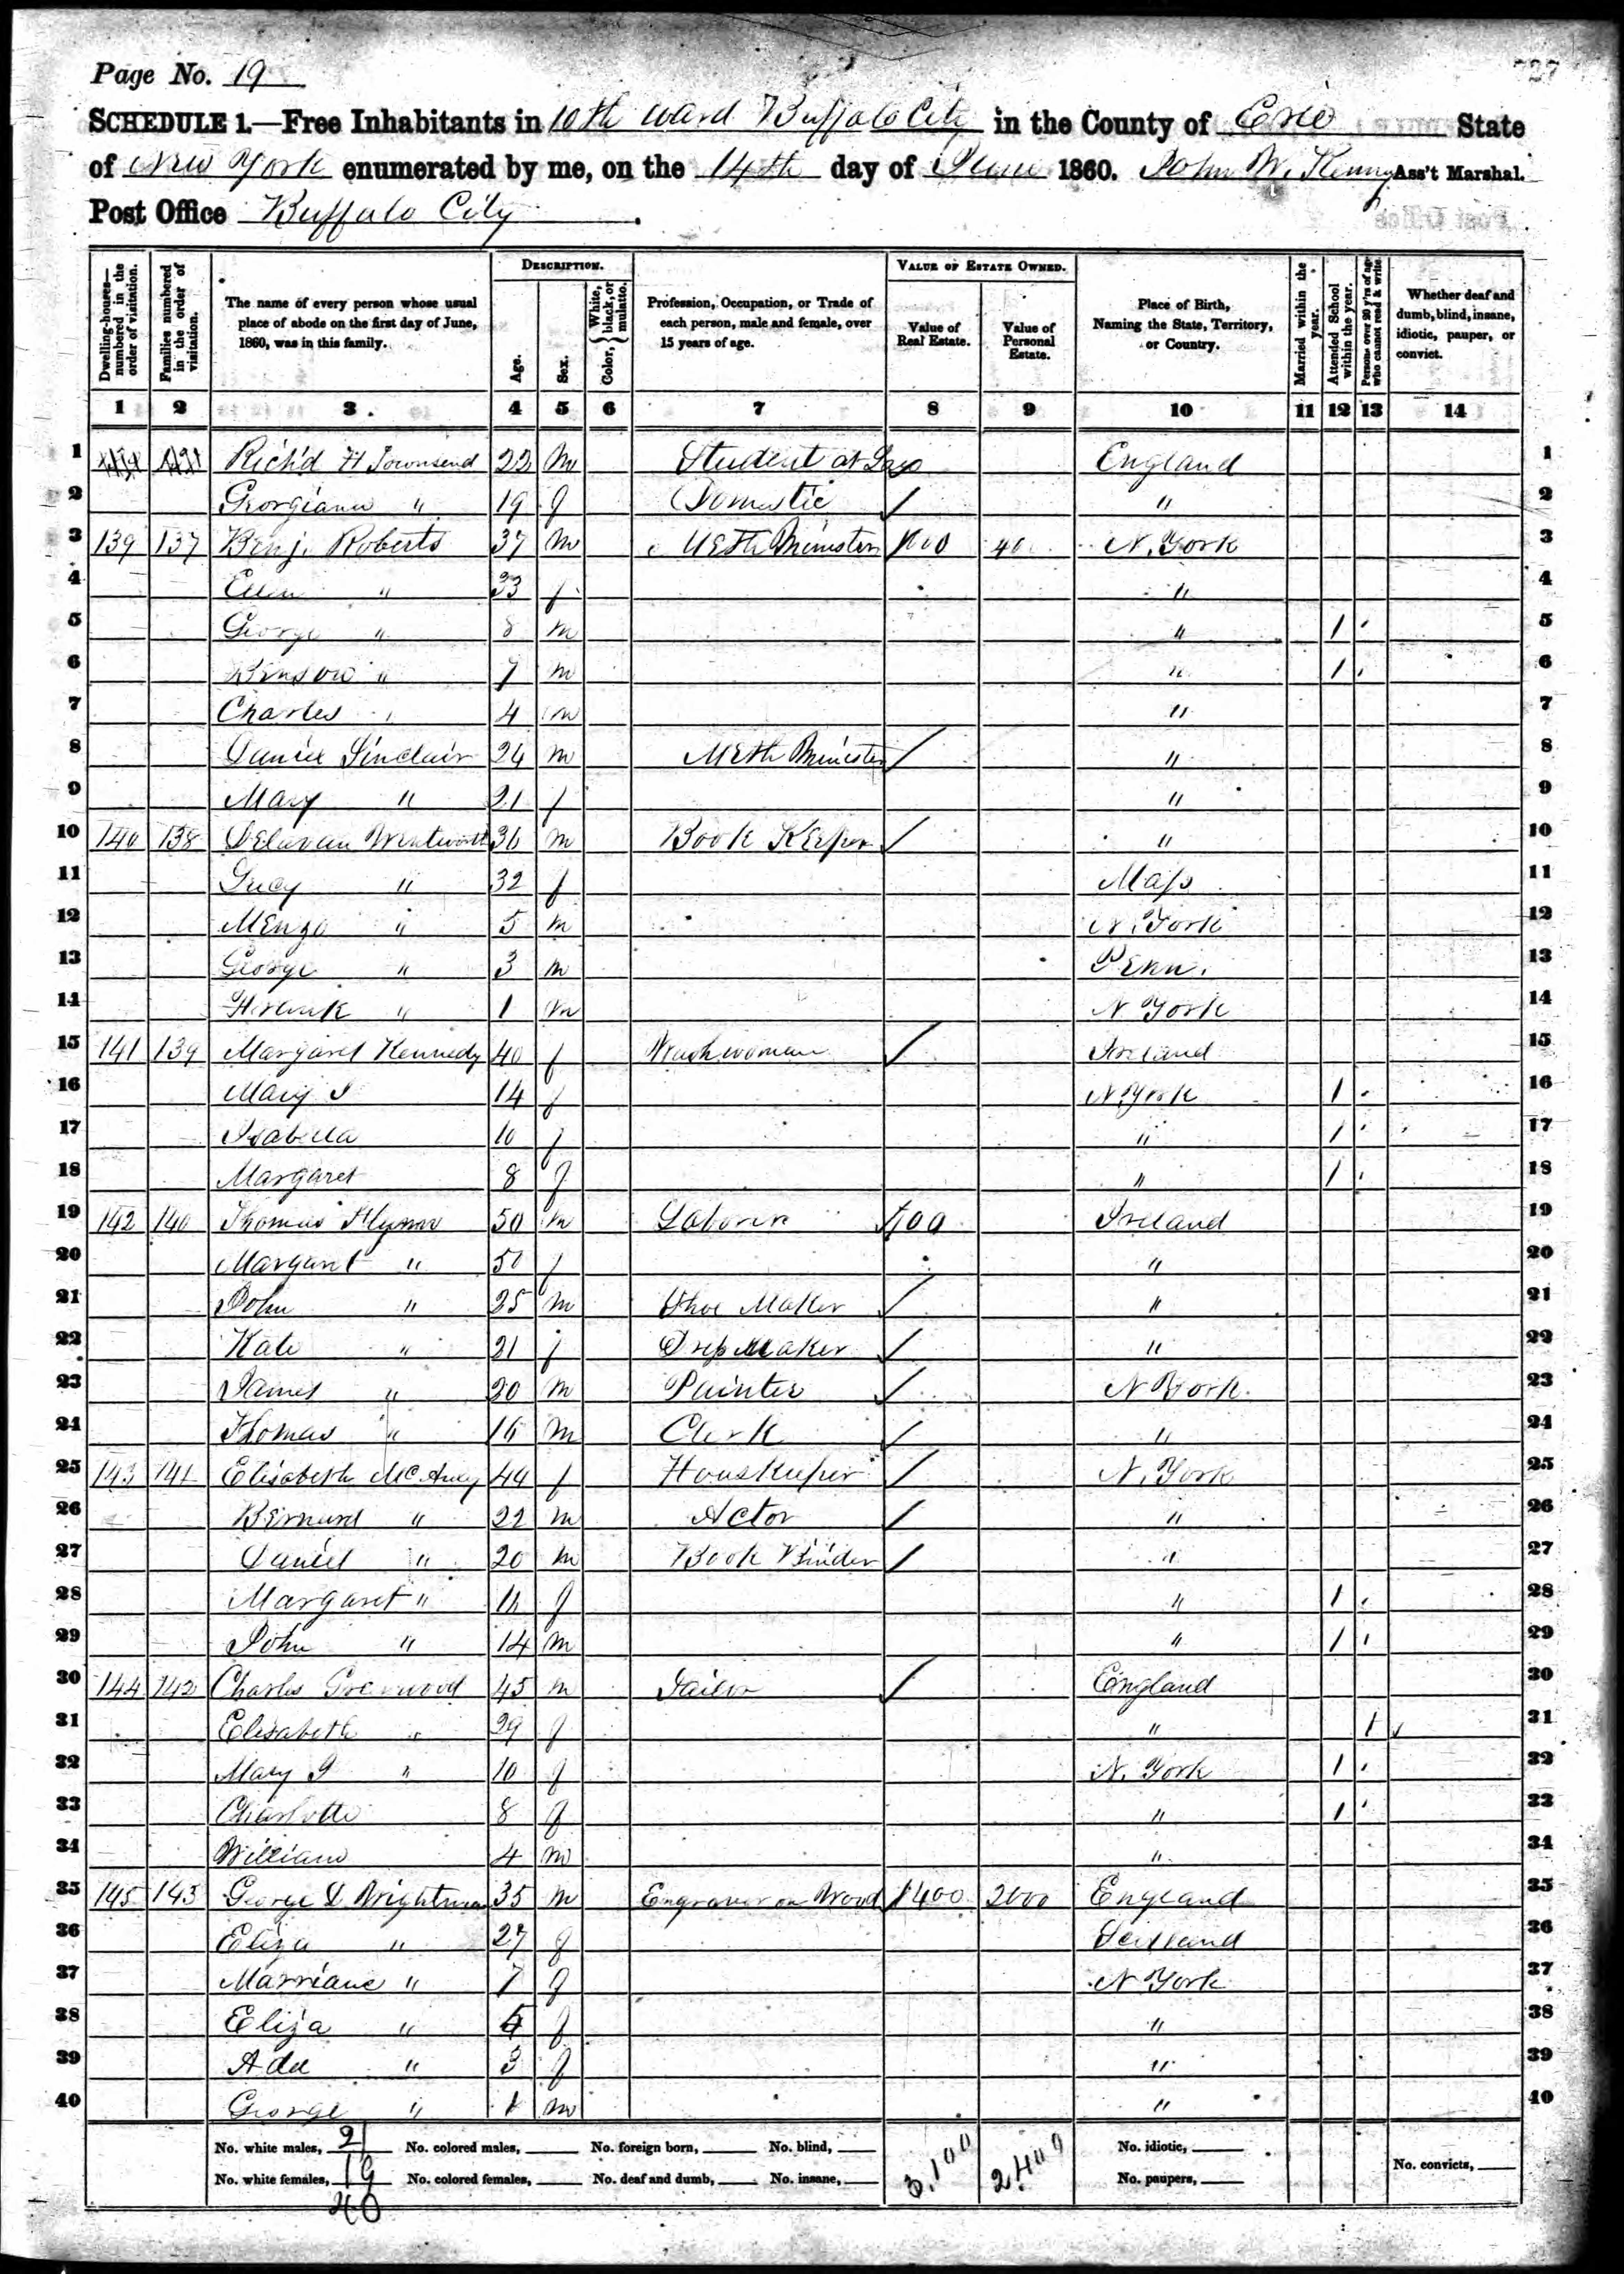 Page No. 19
SCHEDULE 1.—Free Inhabitants in 10th ward Buffalo City in the County of Erie State
of New York enumerated by me, on the 14th day of June 1860. John W. Kenny Ass't Marshal.
Post Office Buffalo City.
Dwelling-houses—numbered in the order of visitation.
Families numbered in the order of visitation.
The name of every person whose usual place of abode on the first day of June, 1860, was in this family.
DESCRIPTION.
Age.
Sex.
Color, White, black, or mulatto.
Profession, Occupation, or Trade of each person, male and female, over 15 years of age.
VALUE OF ESTATE OWNED.
Value of Real Estate.
Value of Personal Estate.
Place of Birth, Naming the State, Territory, or Country.
Married within the year.
Attended School within the year.
Persons over 20 y'rs of age who cannot read & write.
Whether deaf and dumb, blind, insane, idiotic, pauper, or convict.
1 2 3 4 5 6 7 8 9 10 11 12 13 14
1 Rich'd H Townsend 22 m Student at England 1
2 Georgiana " 19 f Domestic " 2
3 139 137 Benj. Roberts 37 m Meth Minister 1000 40 N. York 3
4 Ellen " 33 f " 4
5 George " 8 m " 1 5
6 " 7 m " 1 6
7 Charles " 4 m " 7
8 Daniel Sinclair 24 m Meth Minister " 8
9 Mary " 21 f " 9
10 140 138 Delavan Wentworth 36 m Book Keeper " 10
11 Lucy " 32 f Mass 11
12 Menzo " 5 m N. York 12
13 George " 3 m Penn. 13
14 " 1 m N York 14
15 141 139 Margaret Kennedy 40 f Wash woman Ireland 15
16 Mary J 14 f N York 1 16
17 Isabella 10 f " 1 17
18 Margaret 8 f " 1 18
19 142 140 Thomas Flynn 50 m Laborer 700 Ireland 19
20 Margaret " 50 f " 20
21 John " 25 m Shoe Maker " 21
22 Kate " 21 f Dress Maker " 22
23 James " 20 m Painter N York. 23
24 Thomas " 16 m Clerk " 24
25 143 141 Elisabeth 44 f Houskeeper N. York 25
26 Bernard " 22 m Actor " 26
27 Daniel " 20 m Book Binder " 27
28 Margaret " 16 f " 1 28
29 John " 14 m " 1 29
30 144 142 Charles Greenwood 45 m Tailor England 30
31 Elisabeth " 39 f " 1 31
32 Mary J " 10 f N. York 1 32
33 Charlotte 8 f " 1 33
34 William 4 m " 34
35 145 143 George D Wrightman 35 m Engraver on Wood 1400 2000 England 35
36 Eliza " 27 f Scotland 36
37 Marriane " 7 f N York 37
38 Eliza " f " 38
39 Ada " 3 f " 39
40 George " 1 m " 40
No. white males, 21 No. colored males, No. foreign born, No. blind, 3.100 2.400 No. idiotic,
No. white females, 19 No. colored females, No. deaf and dumb, No. insane, No. paupers, No. convicts,
40